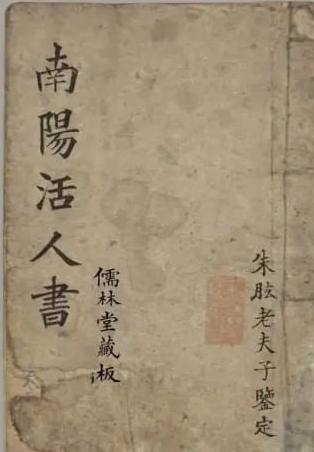 朱肱老夫子鑒定
儒林堂藏板
南陽活人書